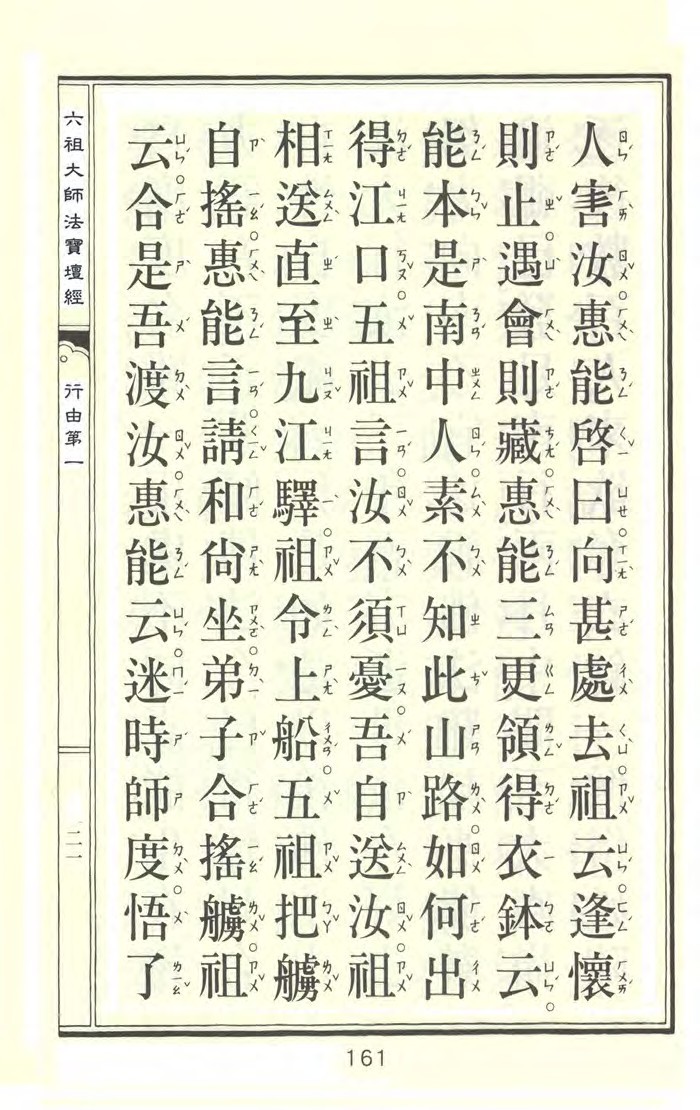 人害汝惠能啓曰向甚處去祖云逢懷
則止遇會則藏惠能三更領得衣鉢云
能本是南中人素不知此山路如何出
得江口五祖言汝不須憂吾自送汝祖
相送直至九江驛祖令上船五祖把艣
自搖惠能言請和尚坐弟子合搖艣祖
云合是吾渡汝惠能云迷時師度悟了
六祖大師法寶壇經
行由第一
二一
161